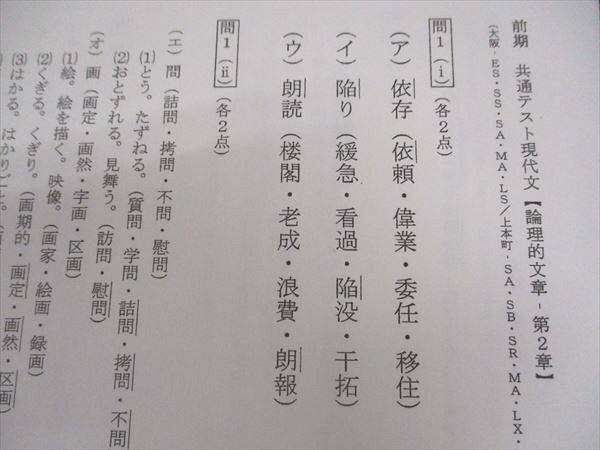 前期 共通テスト現代文【論理的文章 - 第2章】
(大阪 - ES・SS・SA・MA・LS／上本町 - SA・SB・SR・MA・LX・
問1(ⅰ)(各2点)
(ア) 依存(依頼・偉業・委任・移住)
(イ) 陥り(緩急・看過・陥没・干拓)
(ウ) 朗読(楼閣・老成・浪費・朗報)
問1(ⅱ)(各2点)
(エ) 問(詰問・拷問・不問・慰問)
(1)とう。たずねる。(質問・学問・詰問・拷問・不問
(2)おとずれる。見舞う。(訪問・慰問)
(オ) 画(画定・画然・字画・区画)
(1)絵。絵を描く。映像。(画家・絵画・録画)
(2)くぎる。くぎり。(画期的・画定・画然・区画)
(3)はかる。はかりごと。